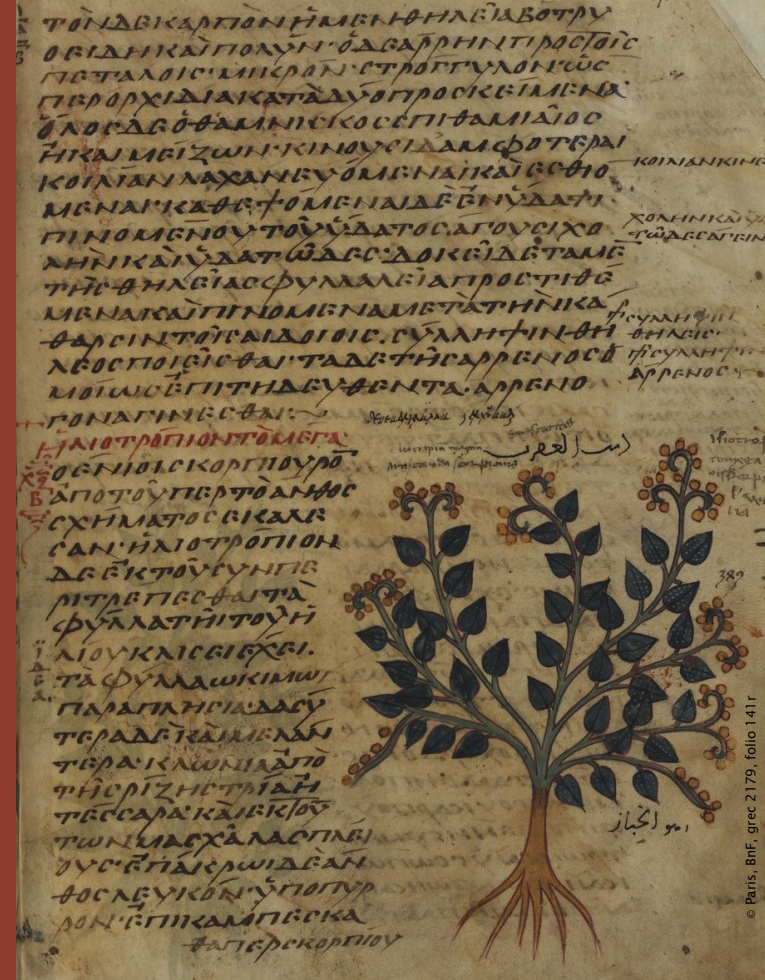 ΤΟΝΔΕΚΑΡΠΟΝΗΜΕΝΘΗΛΕΙΑΒΟΤΡΥ
ΟΕΙΔΗΚΑΙΠΟΛΥΝ·ΟΔΕΑΡΡΗΝΠΡΟΣΤΟΙΣ
ΠΕΤΑΛΟΙΣ·ΜΙΚΡΟΝ·ΣΤΡΟΓΓΥΛΟΝΩΣ
ΠΕΡΟΡΧΙΔΙΑΚΑΤΑΔΥΟΠΡΟΣΚΕΙΜΕΝΑ
ΟΛΟΣΔΕΟΘΑΜΝΙΣΚΟΣΣΠΙΘΑΜΙΑΙΟΣ
ΗΚΑΙΜΕΙΖΩΝ·ΚΙΝΟΥΣΙΔΑΜΦΟΤΕΡΑΙ
ΚΟΙΛΙΑΝΛΑΧΑΝΕΥΟΜΕΝΑΙΚΑΙΕΣΘΙΟ
ΜΕΝΑΙ·ΚΑΘΕΨΟΜΕΝΑΙΔΕΕΝΥΔΑΤΙ·
ΠΙΝΟΜΕΝΟΥΤΟΥΥΔΑΤΟΣ·ΑΓΟΥΣΙΧΟ
ΛΗΝΚΑΙΥΔΑΤΩΔΕΣ·ΔΟΚΕΙΔΕΤΑΜΕ
ΤΗΣΘΗΛΕΙΑΣΦΥΛΛΑΛΕΙΑΠΡΟΣΤΙΘΕ
ΜΕΝΑΚΑΙΠΙΝΟΜΕΝΑΜΕΤΑΤΗΝΚΑ
ΘΑΡΣΙΝΤΟΙΣΑΙΔΟΙΟΙΣ·ΣΥΛΛΗΨΙΝΘΗ
ΛΕΟΣΠΟΙΕΙΣΘΑΙ·ΤΑΔΕΤΗΣΑΡΡΕΝΟΣΟ
ΜΟΙΩΣΕΠΙΤΗΔΕΥΘΕΝΤΑ·ΑΡΡΕΝΟ
ΓΟΝΑΓΙΝΕΣΘΑΙ:
ΚΟΙΛΙΑΝΚΙΝΕ
ΧΟΛΗΝΚΑΙΥΔΑ
ΤΩΔΕΣΑΓΕΙΝ
ΣΥΛΛΗΨΙΝ
ΘΗΛΕΙΣ·
ΣΥΛΛΗΨΙΝ
ΑΡΡΕΝΟΣ
ΗΛΙΟΤΡΟΠΙΟΝΤΟΜΕΓΑ
ΟΕΝΙΟΙΣΚΟΡΠΙΟΥΡΟ
ΑΠΟΤΟΥΠΕΡΤΟΑΝΘΟΣ
ΣΧΗΜΑΤΟΣΕΚΑΛΕ
ΣΑΝ·ΗΛΙΟΤΡΟΠΙΟΝ
ΔΕΕΚΤΟΥΣΥΝΠΕ
ΡΙΤΡΕΠΕΣΘΑΙΤΑ
ΦΥΛΛΑΤΗΙΤΟΥΗ
ΛΙΟΥΚΛΙΣΕΙΕΧΕΙ·
ΤΑΦΥΛΛΑΩΚΙΜΩΙ
ΠΑΡΑΠΛΗΣΙΑ·ΔΑΣΥ
ΤΕΡΑΔΕΚΑΙΜΕΛΑΝ
ΤΕΡΑ·ΚΛΩΝΙΑΑΠΟ
ΤΗΣΡΙΖΗΣΤΡΙΑΗ
ΤΕΣΣΑΡΑ·ΚΑΙΕΚΤΟΥ
ΤΩΝΜΑΣΧΑΛΑΣΠΛΕΙ
ΟΥΣ·ΕΠΑΚΡΩΙΔΕΑΝ
ΘΟΣΛΕΥΚΟΝ·ΥΠΟΠΥΡ
ΡΟΝ·ΕΠΙΚΑΜΠΕΣΚΑ
ΘΑΠΕΡΣΚΟΡΠΙΟΥ
العقرب
الخباز
© Paris, BnF, grec 2179, folio 141r